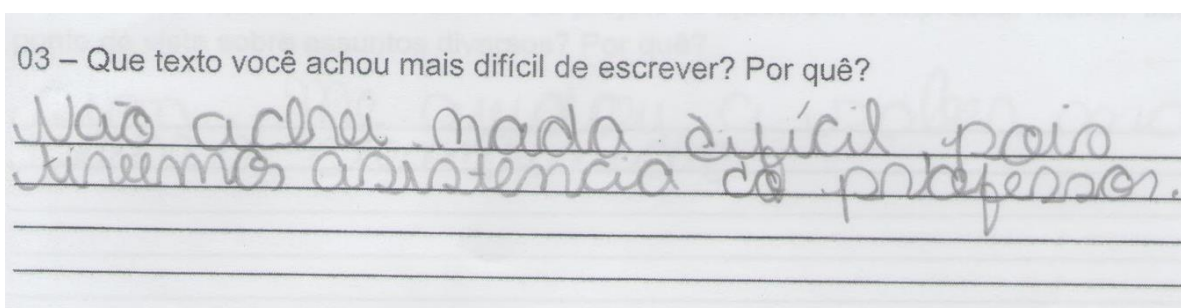 03 – Que texto você achou mais difícil de escrever? Por quê?
Não achei nada difícil pois
tineemos asistencia do professor.